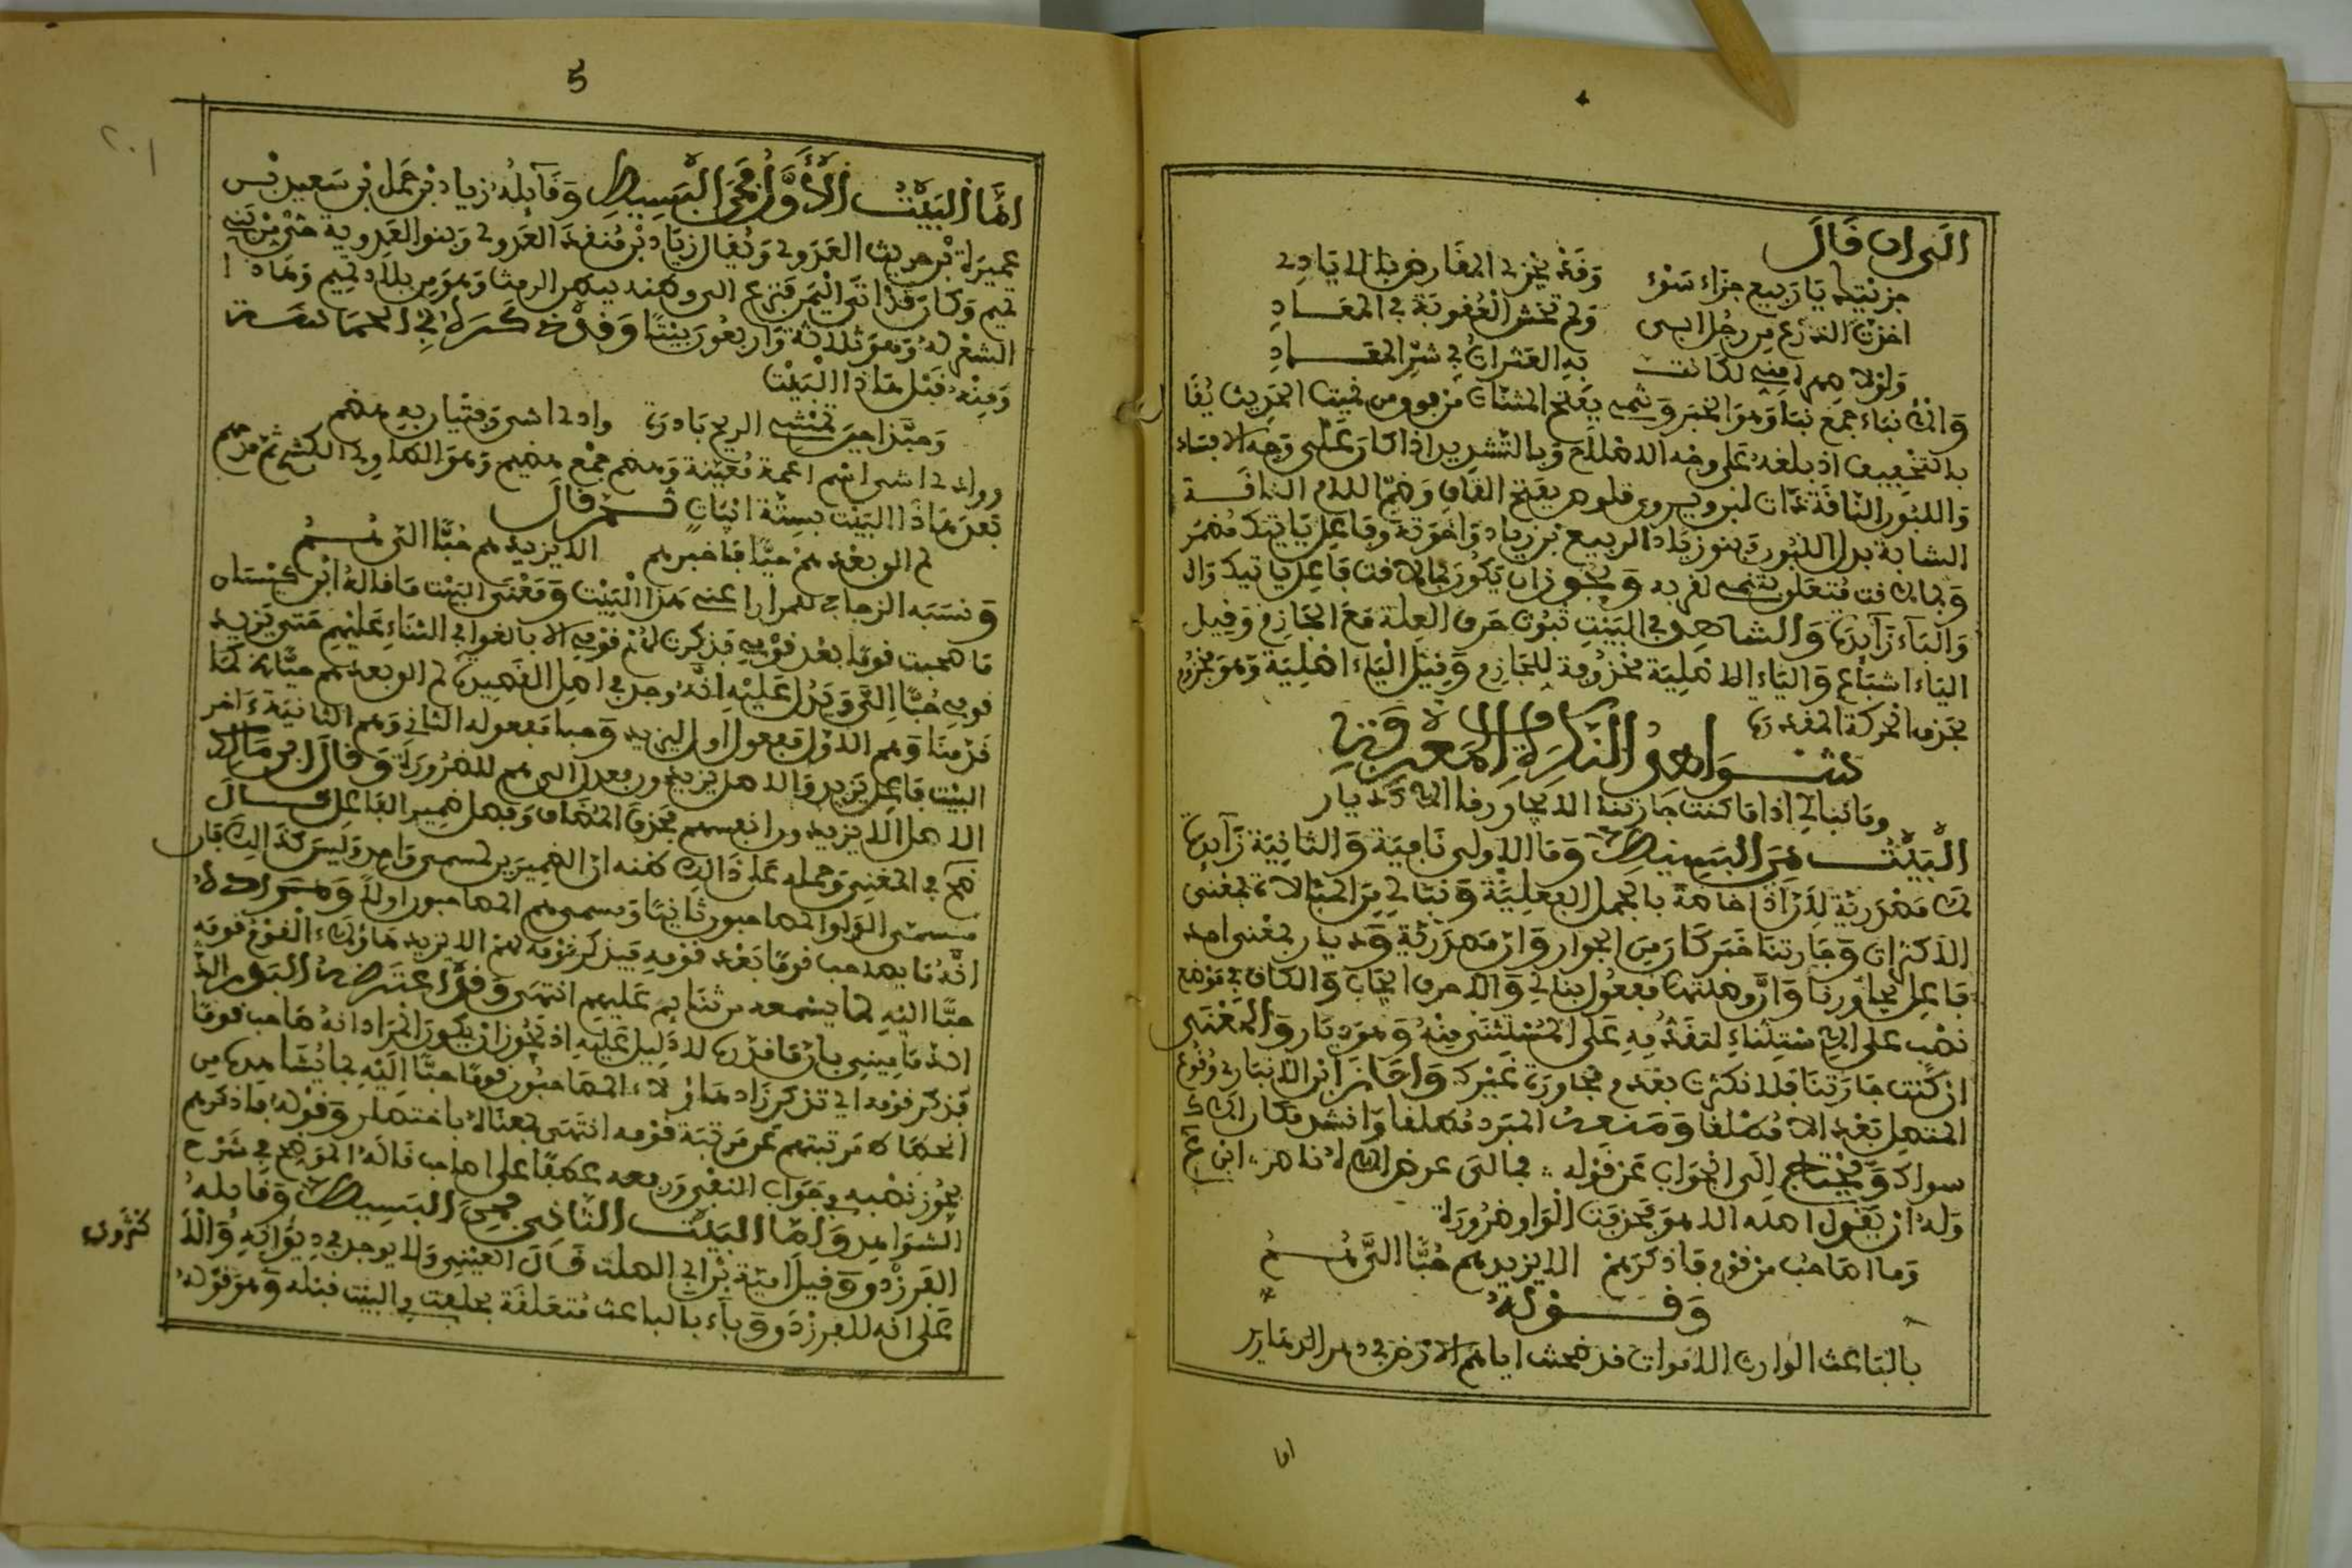 الى ان قال
جزيتك يا ربيع جزاء سوء وقد يجزى المقارض بالايادى
اخذت الدرع من رجل ابي ولم تخش العقوبة في المعاد
ولولا صهر لكانت به العثرات في شر المعاد
والانباء جمع نبا وهو الخبر وتنمى بفتح المثناة من فوق من نميت الحديث
بالتخفيف اذ بلغه على وجه الاصلاح وبالتشديد اذا كان على وجه الافساد
واللبون الناقة ذات لبن ويروى قلوص بفتح القاف وضم اللام الناقة
الشابة بدل اللبون وبنو زياد الربيع بن زياد واخوته وفاعل ياتيك مضمر
وبما لاقت متعلق بتنمى لقربه ويجوز ان يكون بما لاقت فاعل ياتيك
والباء زايدة والشاهد في البيت ثبوت حرف العلة مع الجازم وقيل
الياء اشباع والياء الاصلية محذوفة للجازم وقيل الياء اصلية وهو مجزوم
بحذف الحركة المقدرة
شواهد النكرة والمعرفة
وما نبالي اذا ما كنت جارتنا الا يجاورنا الاك ديار
البيت من البسيط وما الاولى نافية والثانية زايدة
لا مصدرية لان اذا خاصة بالجمل الفعلية ونبالي من المبالاة بمعنى
الاكتراث وجارتنا خبر كان من الجوار وان مصدرية وديار بمعنى احد
فاعل يجاورنا وان وصلتها مفعول نبالي والا حرف ايجاب والكاف في موضع
نصب على الاستثناء لتقدمه على المستثنى منه وهو ديار والمعنى
ان كنت جارتنا فلا نكترث بعدم مجاورة غيرك واجاز ابن الانباري وقوع
المتصل بعد الا مطلقا ومنعه المبرد مطلقا وانشد مكان الاك
سواك ويحتاج الى الجواب عن قوله فمالى عوض الاه ناصر
وله ان يقول اصله الا هو فحذفت الواو ضرورة
وما اصاحب من قوم فاذكرهم الا يزيدهم حبا الى هم
وقوله
بالباعث الوارث الاموات قد ضمنت اياهم الارض في دهر الدهارير
اما
5
اما البيت الاول فمن البسيط وقايله زياد بن حمل بن سعيد بن
عميرة بن حريث العدوى ويقال زياد بن منقذ العدوى وبنو العدوية حى من بنى
تميم وكان قد اتى اليمن فنزع الى وطنه ببطن الرمث وهو من بلاد تميم وهاذا
الشعر له وهو ثلاثة واربعون بيتا وقد ذكره في الحماسة
ومنه قبل هاذا البيت
وحبذا حين تمسى الريح باردة وادى اشى وفتيان به هضم
ووادى اشى اسم اكمة معينة وهضم جمع هضيم وهو الطاوى الكشح ثم
بعد هاذا البيت بستة ابيات ثم قال
لم الق بعدهم حيا فاخبرهم الا يزيدهم حبا الى هم
ونسبه الزجاجي للمرار هذا البيت ومعنى البيت ما قاله ابن كيسان
ما صحبت قوما بعد قومى فذكرت لهم قومى الا بالغوا في الثناء عليهم حتى يزيد
قومى حبا الى ويدل عليه انه وجد في اصل القصيدة لم الق بعدهم حيا كما
قدمنا وهم الاول مفعول اول ليزيد وحبا مفعوله الثانى وهم الثانية ءاخر
البيت فاعل يزيد والاصل يزيدون فعدل الى هم للضرورة وقال ابن مالك
الاصل الا يزيدون انفسهم فحذف المضاف وفصل ضمير الفاعل قال
في المغنى وحمله على ذالك ظنه ان الضميرين لمسمى واحد وليس كذالك فان
مسمى الواو المصاحبون ثانيا ومسمى هم المصاحبون اولا ومراده
انه ما يصاحب قوما بعد قومه فيذكر قومه لهم الا يزيد هاؤلاء القوم قومه
حبا اليه لما يسمعه من ثنايهم عليهم انتهى وقد اعترضه البدر
الدمامينى بان ما قدره لا دليل عليه اذ يجوز ان يكون المراد انه صاحب قوما
فذكر قومه اي تذكر زاد هاؤلاء المصاحبون قومه حبا اليه لما يشاهده من
انحطاط مرتبتهم عن مرتبة قومه انتهى بمعناه باختصار وقوله فاذكرهم
يجوز نصبه في جواب النفى ورفعه عطفا على اصاحب قاله الموضح في شرح
الشواهد واما البيت الثانى فمن البسيط وقايله
الفرزدق وقيل امية بن ابي الصلت قال العينى ولا يوجد في ديوانه والاكثرون
على انه للفرزدق وباء بالباعث متعلقة بحلفت في البيت قبله وهو قوله